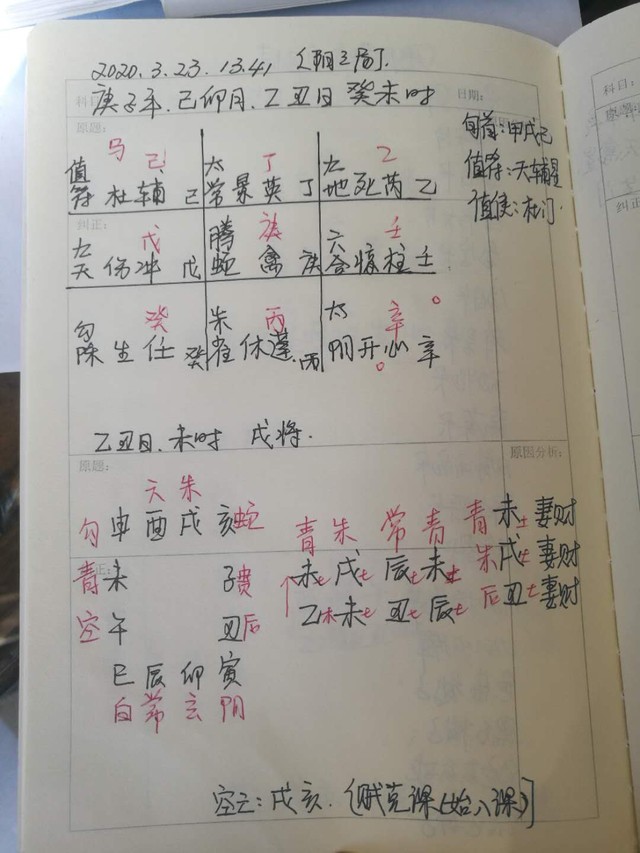 2020.3.23.13:41 (阴三局).
科目
庚子年.己卯月.乙丑日 癸未时
日期:
科目:
原题:
旬首:甲戌己
值符:天辅星
值使:杜门
马 己 太 丁 九 乙
值符 杜 辅 己 常 景 英 丁 地 死 芮 乙
纠正:
九 戊 腾 庚 六 壬
天 伤 冲 戊 蛇 禽 庚 合 惊 柱 壬
癸 朱 丙 太 辛 o
勾陈 生 任 癸 雀 休 蓬 丙 阴 开 心 辛
o
乙丑日.未时 戌将.
原题:
原因分析:
天 朱
勾 申 酉 戌 亥 蛇
青 朱 常 青 青 未土 妻财
青 未 子 贵
未土 戌土 辰土 未土 朱 戌土 妻财
空 午 丑 后
乙木 未土 丑土 辰土 后 丑土 妻财
巳 辰 卯 寅
白 常 玄 阴
空亡:戌亥. (贼克课(始入课)]